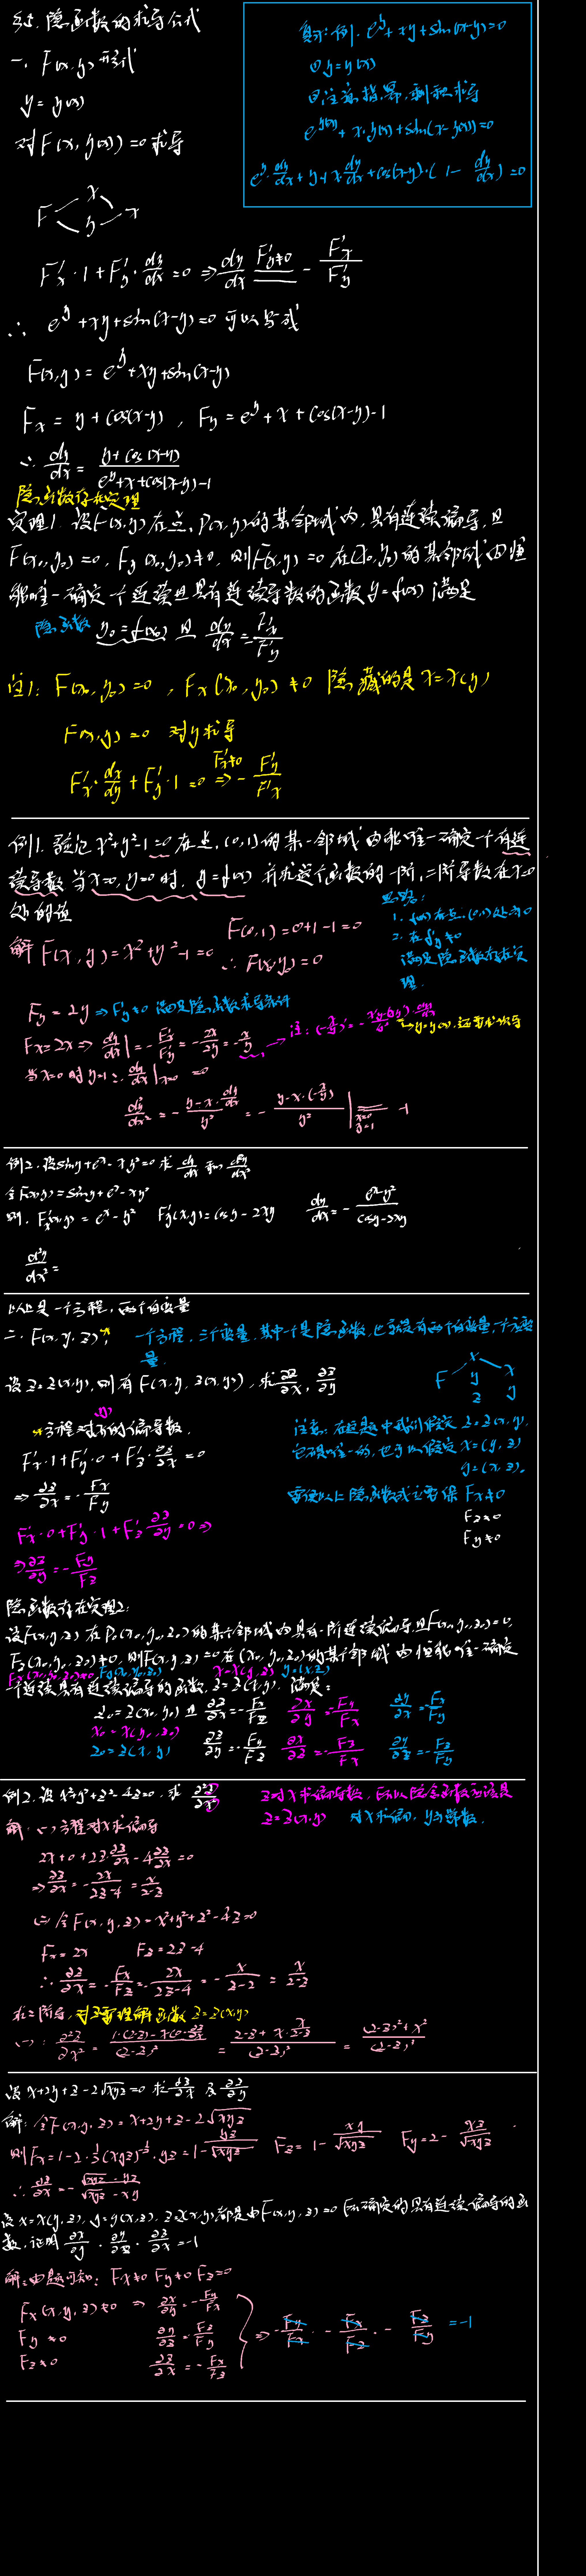 §5. 隐函数的求导公式
一、F(x,y) 形式
y = y(x)
对 F(x, y(x)) = 0 求导
F x y x
F'x · 1 + F'y · dy/dx = 0 ⇒ dy/dx F'y≠0 - F'x/F'y
∴ e^y + xy + sin(x-y) = 0 可以写成
F(x,y) = e^y + xy + sin(x-y)
Fx = y + cos(x-y) , Fy = e^y + x + cos(x-y)·-1
∴ dy/dx = y+cos(x-y) / e^y+x+cos(x-y)·-1
复习: 例. e^y + xy + sin(x-y) = 0
e^y(x) + x·y(x) + sin(x-y(x)) = 0
e^y · dy/dx + y + x dy/dx + cos(x-y)·(1 - dy/dx) = 0
隐函数存在定理
定理1. 设F(x,y) 在点 P(x,y) 的某邻域内, 具有连续偏导, 且
F(x0,y0) = 0, Fy(x0,y0) ≠ 0, 则F(x,y) = 0 在(x0,y0) 的某邻域内恒
能唯一确定一个连续且具有连续导数的函数 y = f(x) 满足
隐函数 y0 = f(x0) 且 dy/dx = -F'x/F'y
注1: F(x0,y0) = 0 , Fx(x0,y0) ≠ 0 隐藏的是 x = x(y)
F(x,y) = 0 对y求导
F'x · dx/dy + F'y · 1 = 0 F'x≠0 ⇒ - F'y/F'x
例1. 验证 x²+y²-1=0 在点 (0,1) 的某一邻域内能唯一确定一个有连
续导数 当x=0, y=0 时, y=f(x) 并求这个函数的一阶, 二阶导数在x=0
处的值
思路:
2. 在 f'y ≠ 0
满足隐函数存在定
理.
解 F(x,y) = x²+y²-1=0 F(0,1) = 0+1-1=0
∴ F(x,y) = 0
Fy = 2y ⇒ F'y ≠ 0 满足隐函数求导条件
Fx = 2x ⇒ dy/dx = -F'x/F'y = -2x/2y = -x/y
当x=0 时 y=1 ∴ dy/dx|x=0 = 0
d²y/dx² = - y-x·dy/dx / y² = - y-x·(-x/y) / y² | x=0 y=1 -1
例2. 设 siny + e^x - xy² = 0 求 dy/dx 和 d²y/dx²
令 F(x,y) = siny + e^x - xy²
则. F'x(x,y) = e^x - y² F'y(x,y) = cosy - 2xy dy/dx = - e^x-y² / cosy-2xy
d²y/dx² =
以上是一个方程, 两个自变量
二. F(x,y,z): 一个方程, 三个变量, 其中一个是隐函数, 也就是有两个自变量, 一个应变
量.
设 z = z(x,y), 则有 F(x,y,z(x,y)), 求 ∂z/∂x, ∂z/∂y
方程对x的偏导数,
F'x · 1 + F'y · 0 + F'z · ∂z/∂x = 0
⇒ ∂z/∂x = - Fx/Fy
F'x · 0 + F'y · 1 + F'z ∂z/∂y = 0 ⇒
⇒ ∂z/∂y = - Fy/Fz
注意: 在此题中我们假定 z = z(x,y),
它不是唯一的, 也可以假定 x = (y,z)
y = (x,z).
Fx≠0
Fz≠0
Fy≠0
隐函数存在定理2:
设F(x,y,z) 在 P(x0,y0,z0) 的某个邻域内具有一阶连续偏导且F(x0,y0,z0)=0,
Fz(x0,y0,z0) ≠ 0, 则F(x,y,z) = 0 在 (x0,y0,z0) 的某个邻域内恒能唯一确定
Fx(x0,y0,z0)≠0 Fy(x0,y0,z0) x=x(y,z) y=(x,z)
一个连续具有连续偏导的函数, z = z(x,y), 满足:
z0 = z(x0,y0) 且 ∂z/∂x = -Fx/Fz ∂x/∂y = -Fy/Fx ∂y/∂x = -Fx/Fy
x0 = x(y0,z0)
z0 = z(x,y) ∂z/∂y = -Fy/Fz ∂x/∂z = -Fz/Fx ∂y/∂z = -Fz/Fy
例2. 设 x²+y²+z²-4z=0, 求 ∂²z/∂x²
z对x求偏导数, 所以隐含函数应该是
z = z(x,y) 对x求偏, y为常数.
解: (一) 方程对x求偏导
2x + 0 + 2z·∂z/∂x - 4∂z/∂x = 0
⇒ ∂z/∂x = - 2x/2z-4 = x/2-z
(二) 令 F(x,y,z) = x²+y²+z²-4z=0
Fx = 2x Fz = 2z-4
∴ ∂z/∂x = -Fx/Fz = - 2x/2z-4 = - x/z-2 = x/2-z
求二阶导, 对z要理解函数 z = z(x,y)
(一): ∂²z/∂x² = 1·(2-z)-x(0-∂z/∂x) / (2-z)² = 2-z+x·x/2-z / (2-z)² = (2-z)²+x² / (2-z)³
设 x+2y+z-2√xyz=0 求 ∂z/∂x 及 ∂z/∂y
解: 令F(x,y,z) = x+2y+z-2√xyz
则 Fx = 1-2·½(xyz)^-½·yz = 1- yz/√xyz Fz = 1- xy/√xyz Fy = 2- xz/√xyz
∴ ∂z/∂x = - √xyz-yz / √xyz-xy
设 x=x(y,z), y=y(x,z), z=z(x,y) 都是由F(x,y,z)=0 所确定的具有连续偏导的函
数, 证明 ∂x/∂y · ∂y/∂z · ∂z/∂x = -1
解: 由题可知: Fx≠0 Fy≠0 Fz=0
Fx(x,y,z)≠0 ⇒ ∂x/∂y = -Fy/Fx
Fy≠0 ∂y/∂z = -Fz/Fy
Fz≠0 ∂z/∂x = -Fx/Fz
⇒ -Fy/Fx · -Fx/Fz · -Fz/Fy = -1